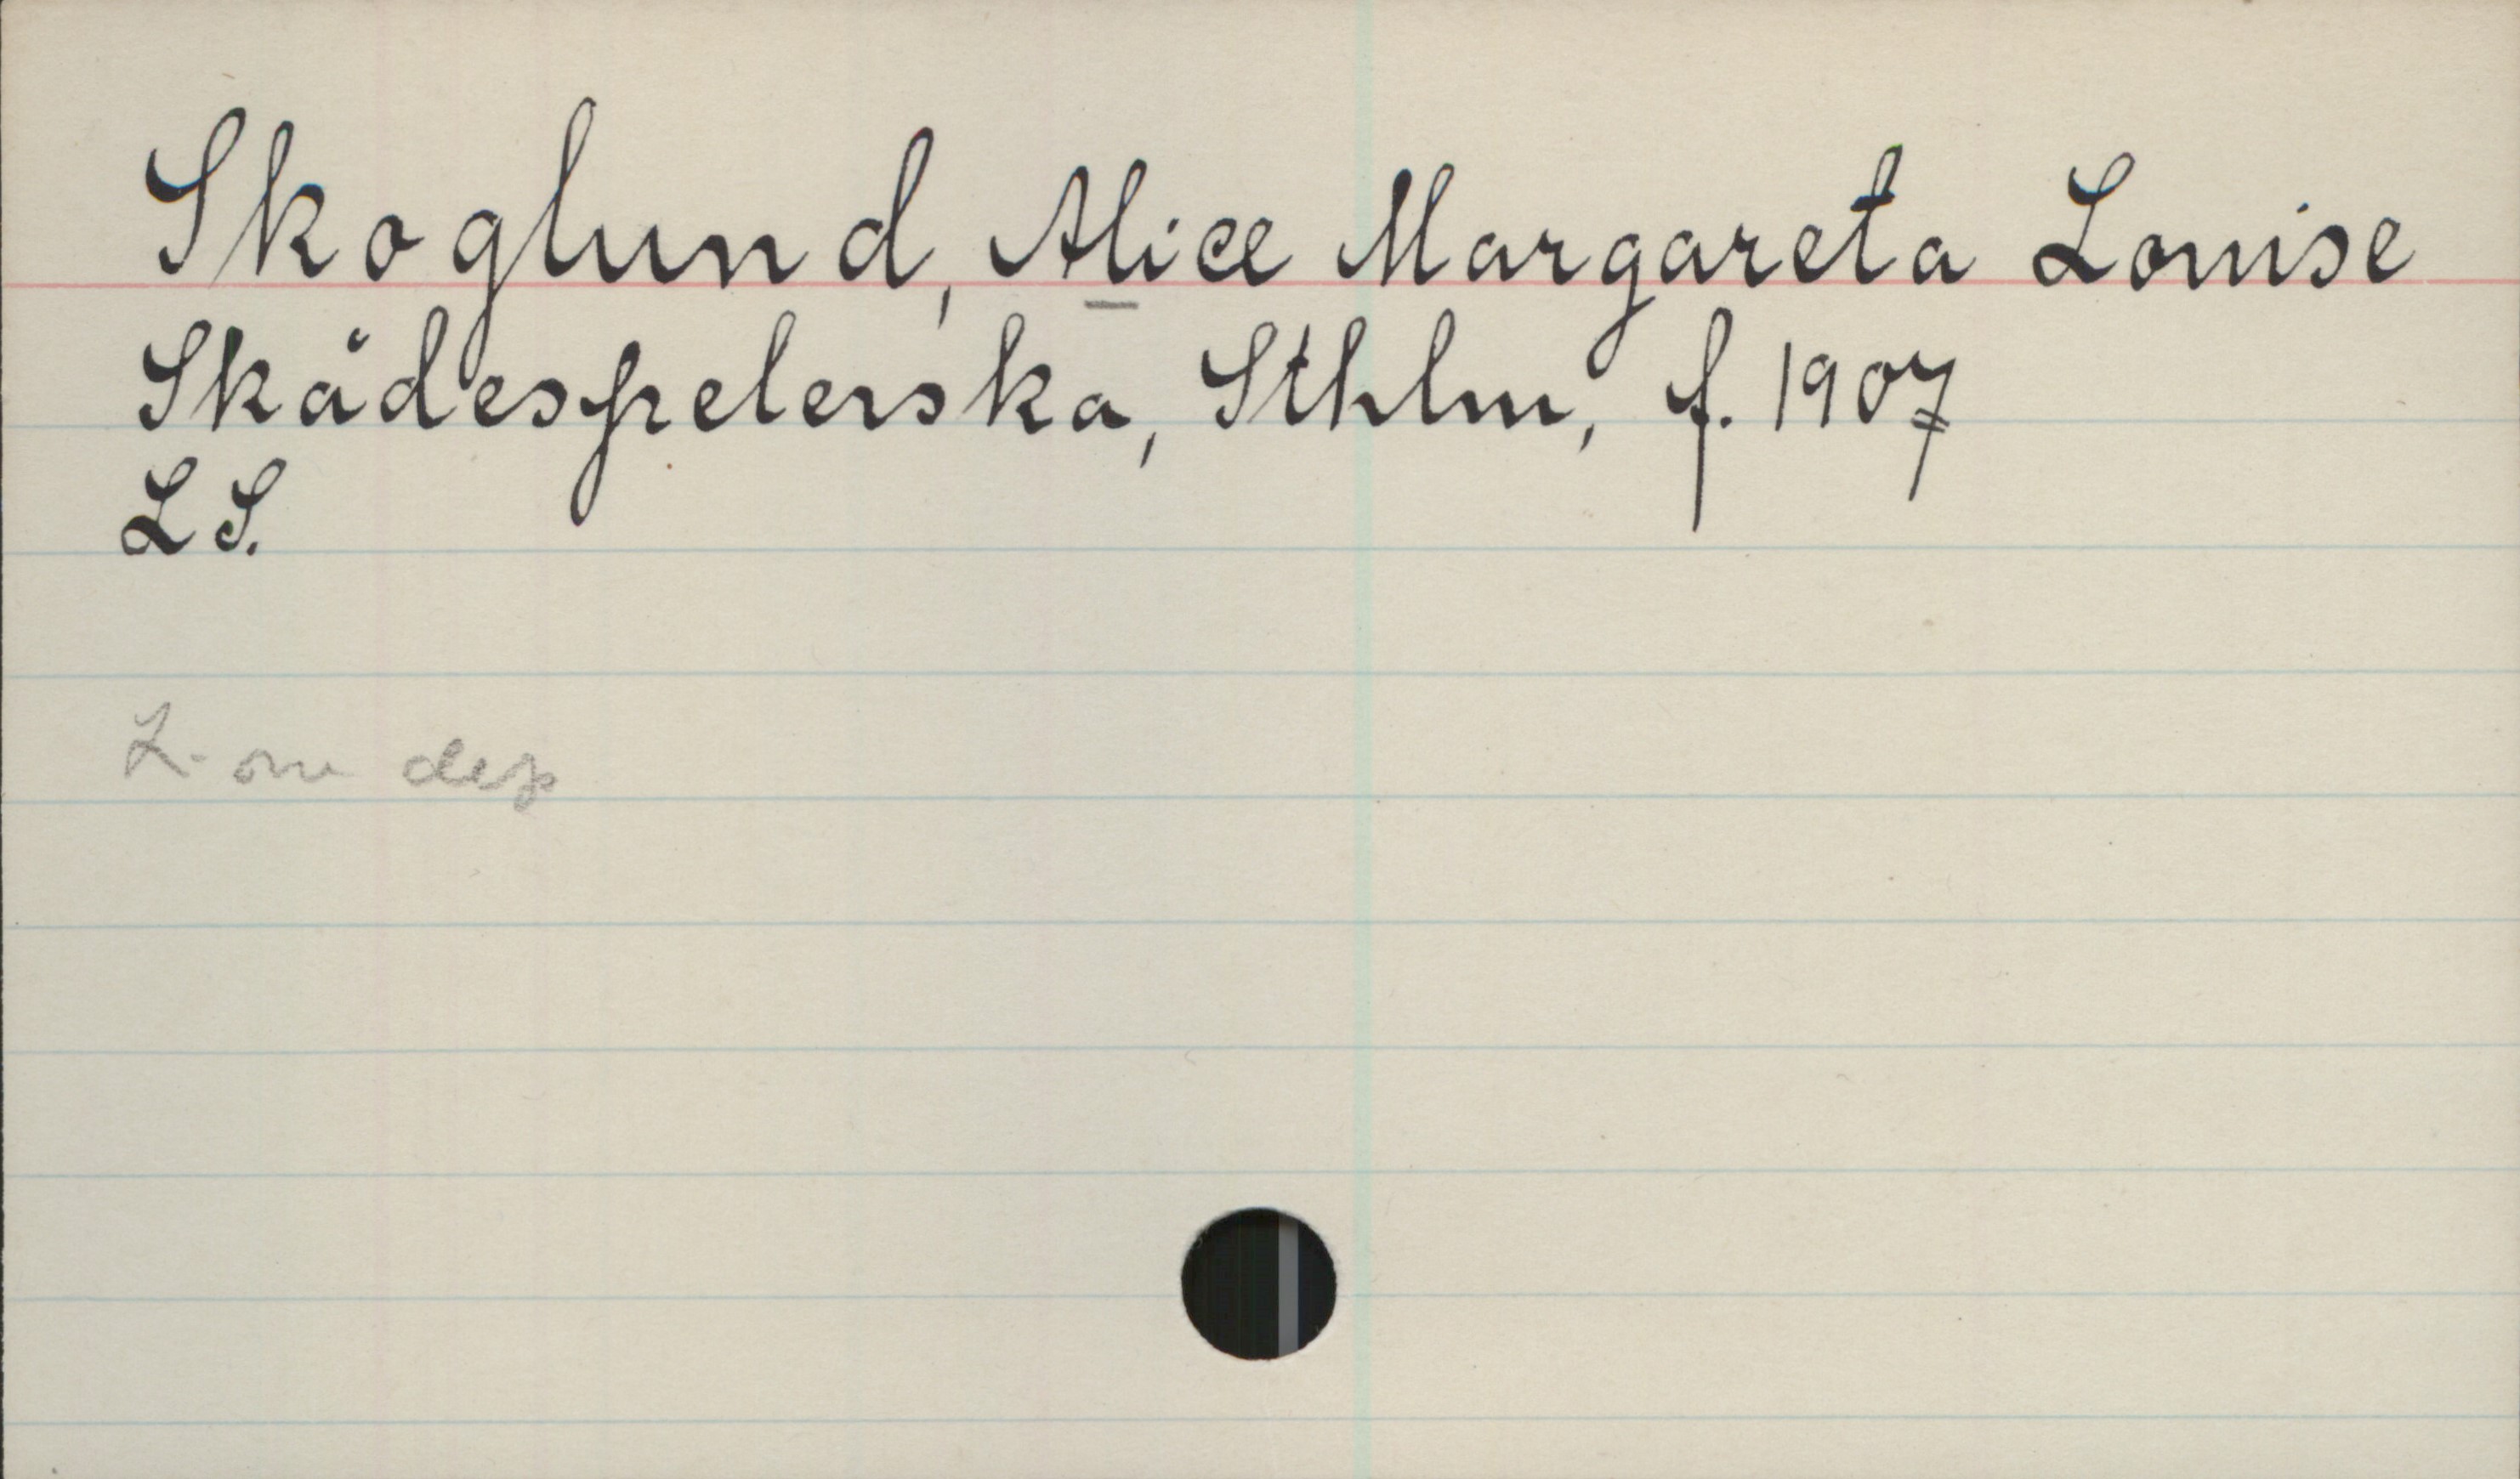 Skoglund, Alice Margareta Louise
Skådespelerska, Sthlm, f. 1907
LS.
L. om dep